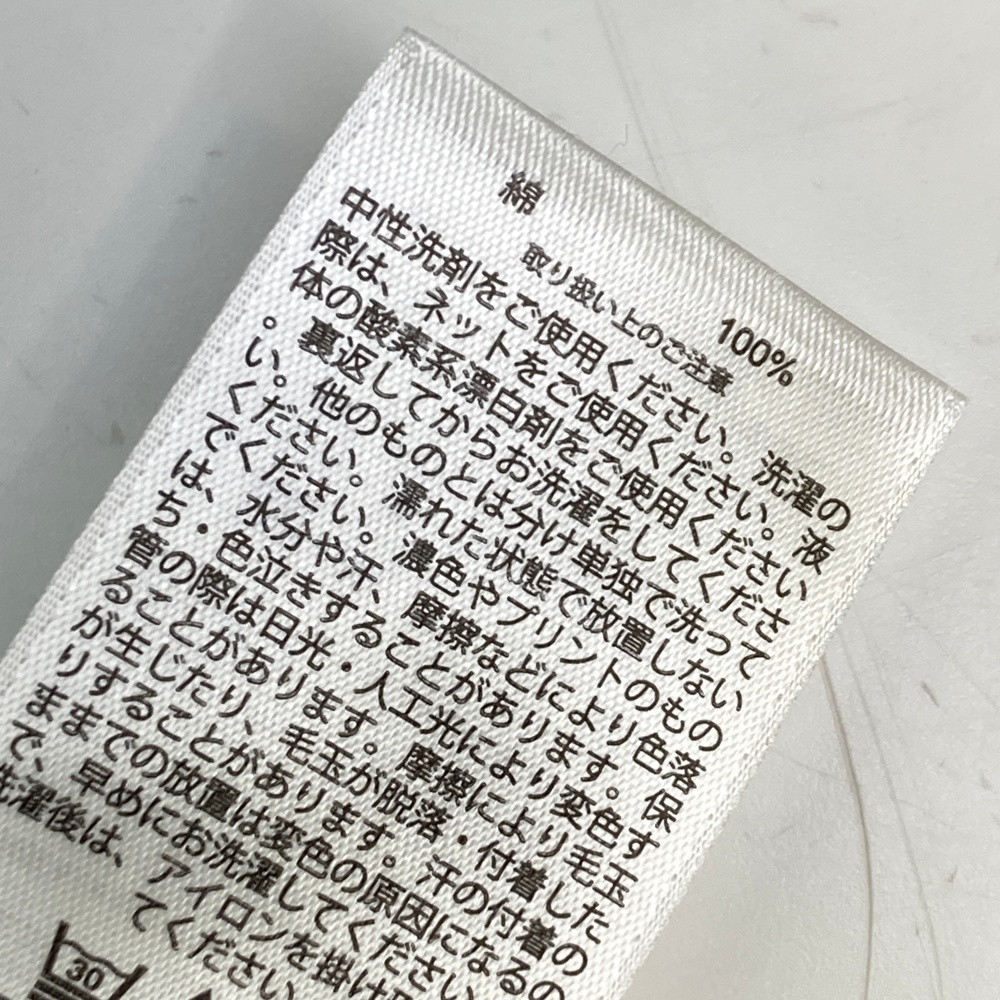 綿 100%
取り扱い上のご注意
中性洗剤をご使用ください。洗濯の
際は、ネットをご使用ください。液
体の酸素系漂白剤をご使用ください
。裏返してからお洗濯をしてくださ
い。他のものとは分け単独で洗って
ください。濡れた状態で放置しない
でください。濃色やプリントのもの
は、水分や汗、摩擦などにより色落
ち・色泣きすることがあります。保
管の際は日光・人工光により変色す
ることがあります。摩擦により毛玉
が生じたり、毛玉が脱落・付着した
りすることがあります。汗の付着の
ままでの放置は変色の原因になるの
で、早めにお洗濯してください
洗濯後は、アイロンを掛け
てください
30